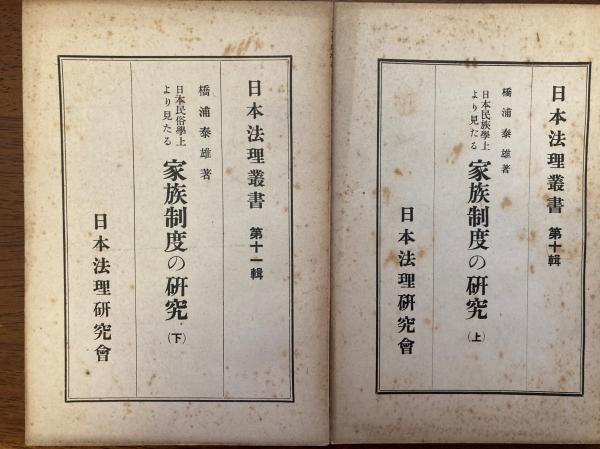 日本法理叢書 第十輯
橋浦泰雄著
日本民族學上
より見たる
家族制度の研究(上)
日本法理研究會
日本法理叢書 第十一輯
橋浦泰雄著
日本民俗學上
より見たる
家族制度の研究(下)
日本法理研究會